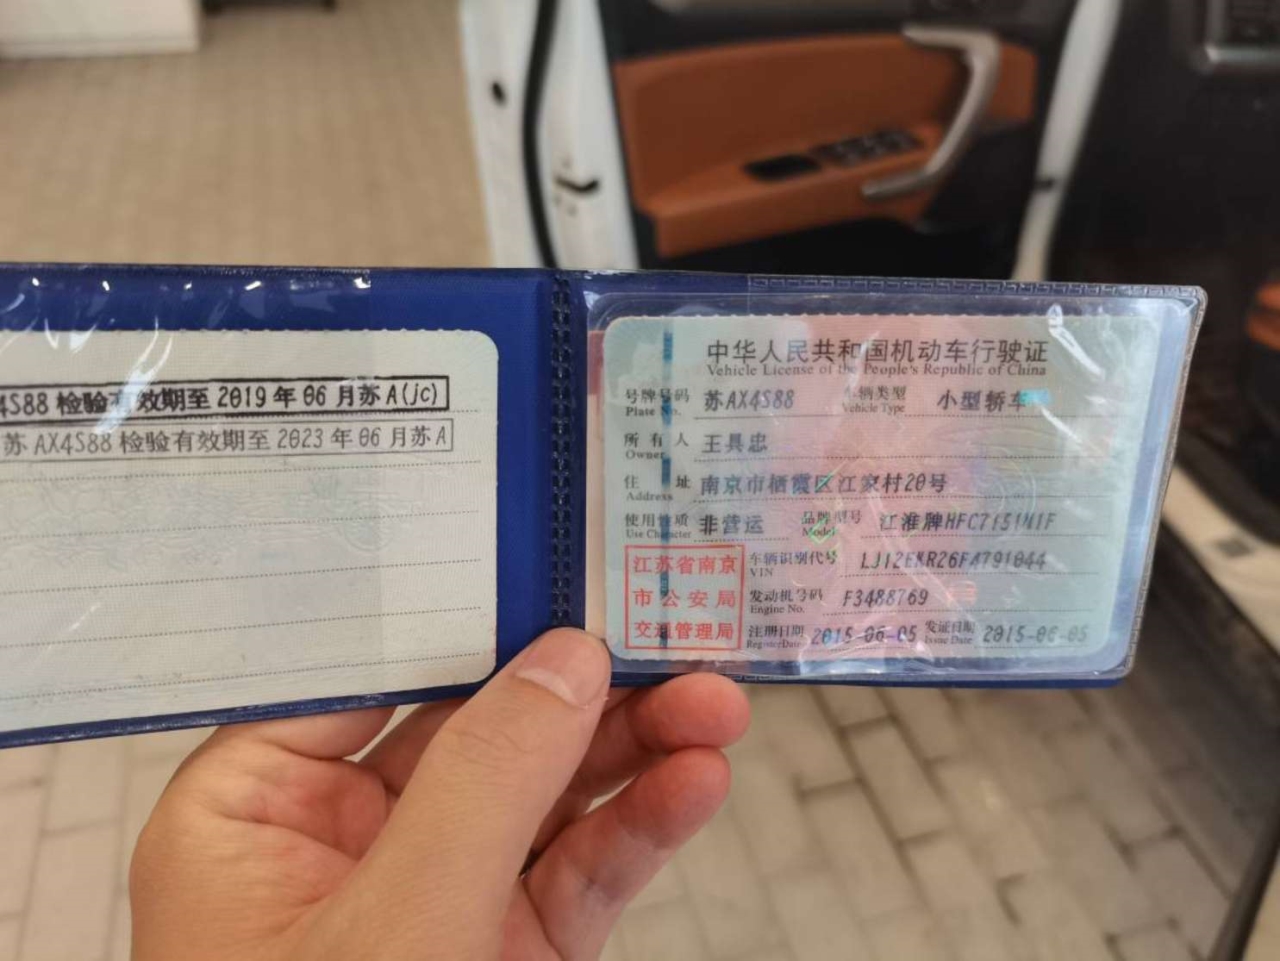 4S88 检验有效期至 2019 年 06 月苏 A(jc)
苏 AX4S88 检验有效期至 2023 年 06 月苏 A
中华人民共和国机动车行驶证
Vehicle License of the People's Republic of China
号牌号码 苏AX4S88 车辆类型 小型轿车
Plate No. Vehicle Type
所有人 王具忠
Owner
住址 南京市栖霞区江家村20号
Address
使用性质 非营运 品牌型号 江淮牌HFC7151M1F
Use Character Model
江苏省南京
市公安局
交通管理局
车辆识别代号 LJ12EKR26F4791044
VIN
发动机号码 F3488769
Engine No.
注册日期 2015-06-05 发证日期 2015-06-05
Register Date Issue Date